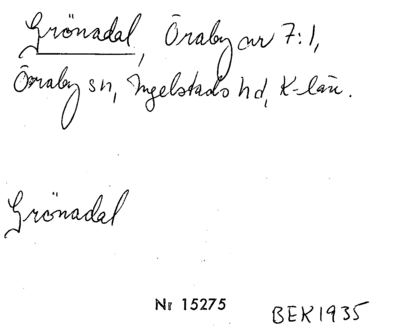 Grönadal, Öraby nr 7:1,
Öraby sn, Ingelstads hd, K-län.
Grönadal
Nr 15275
BEK 1935